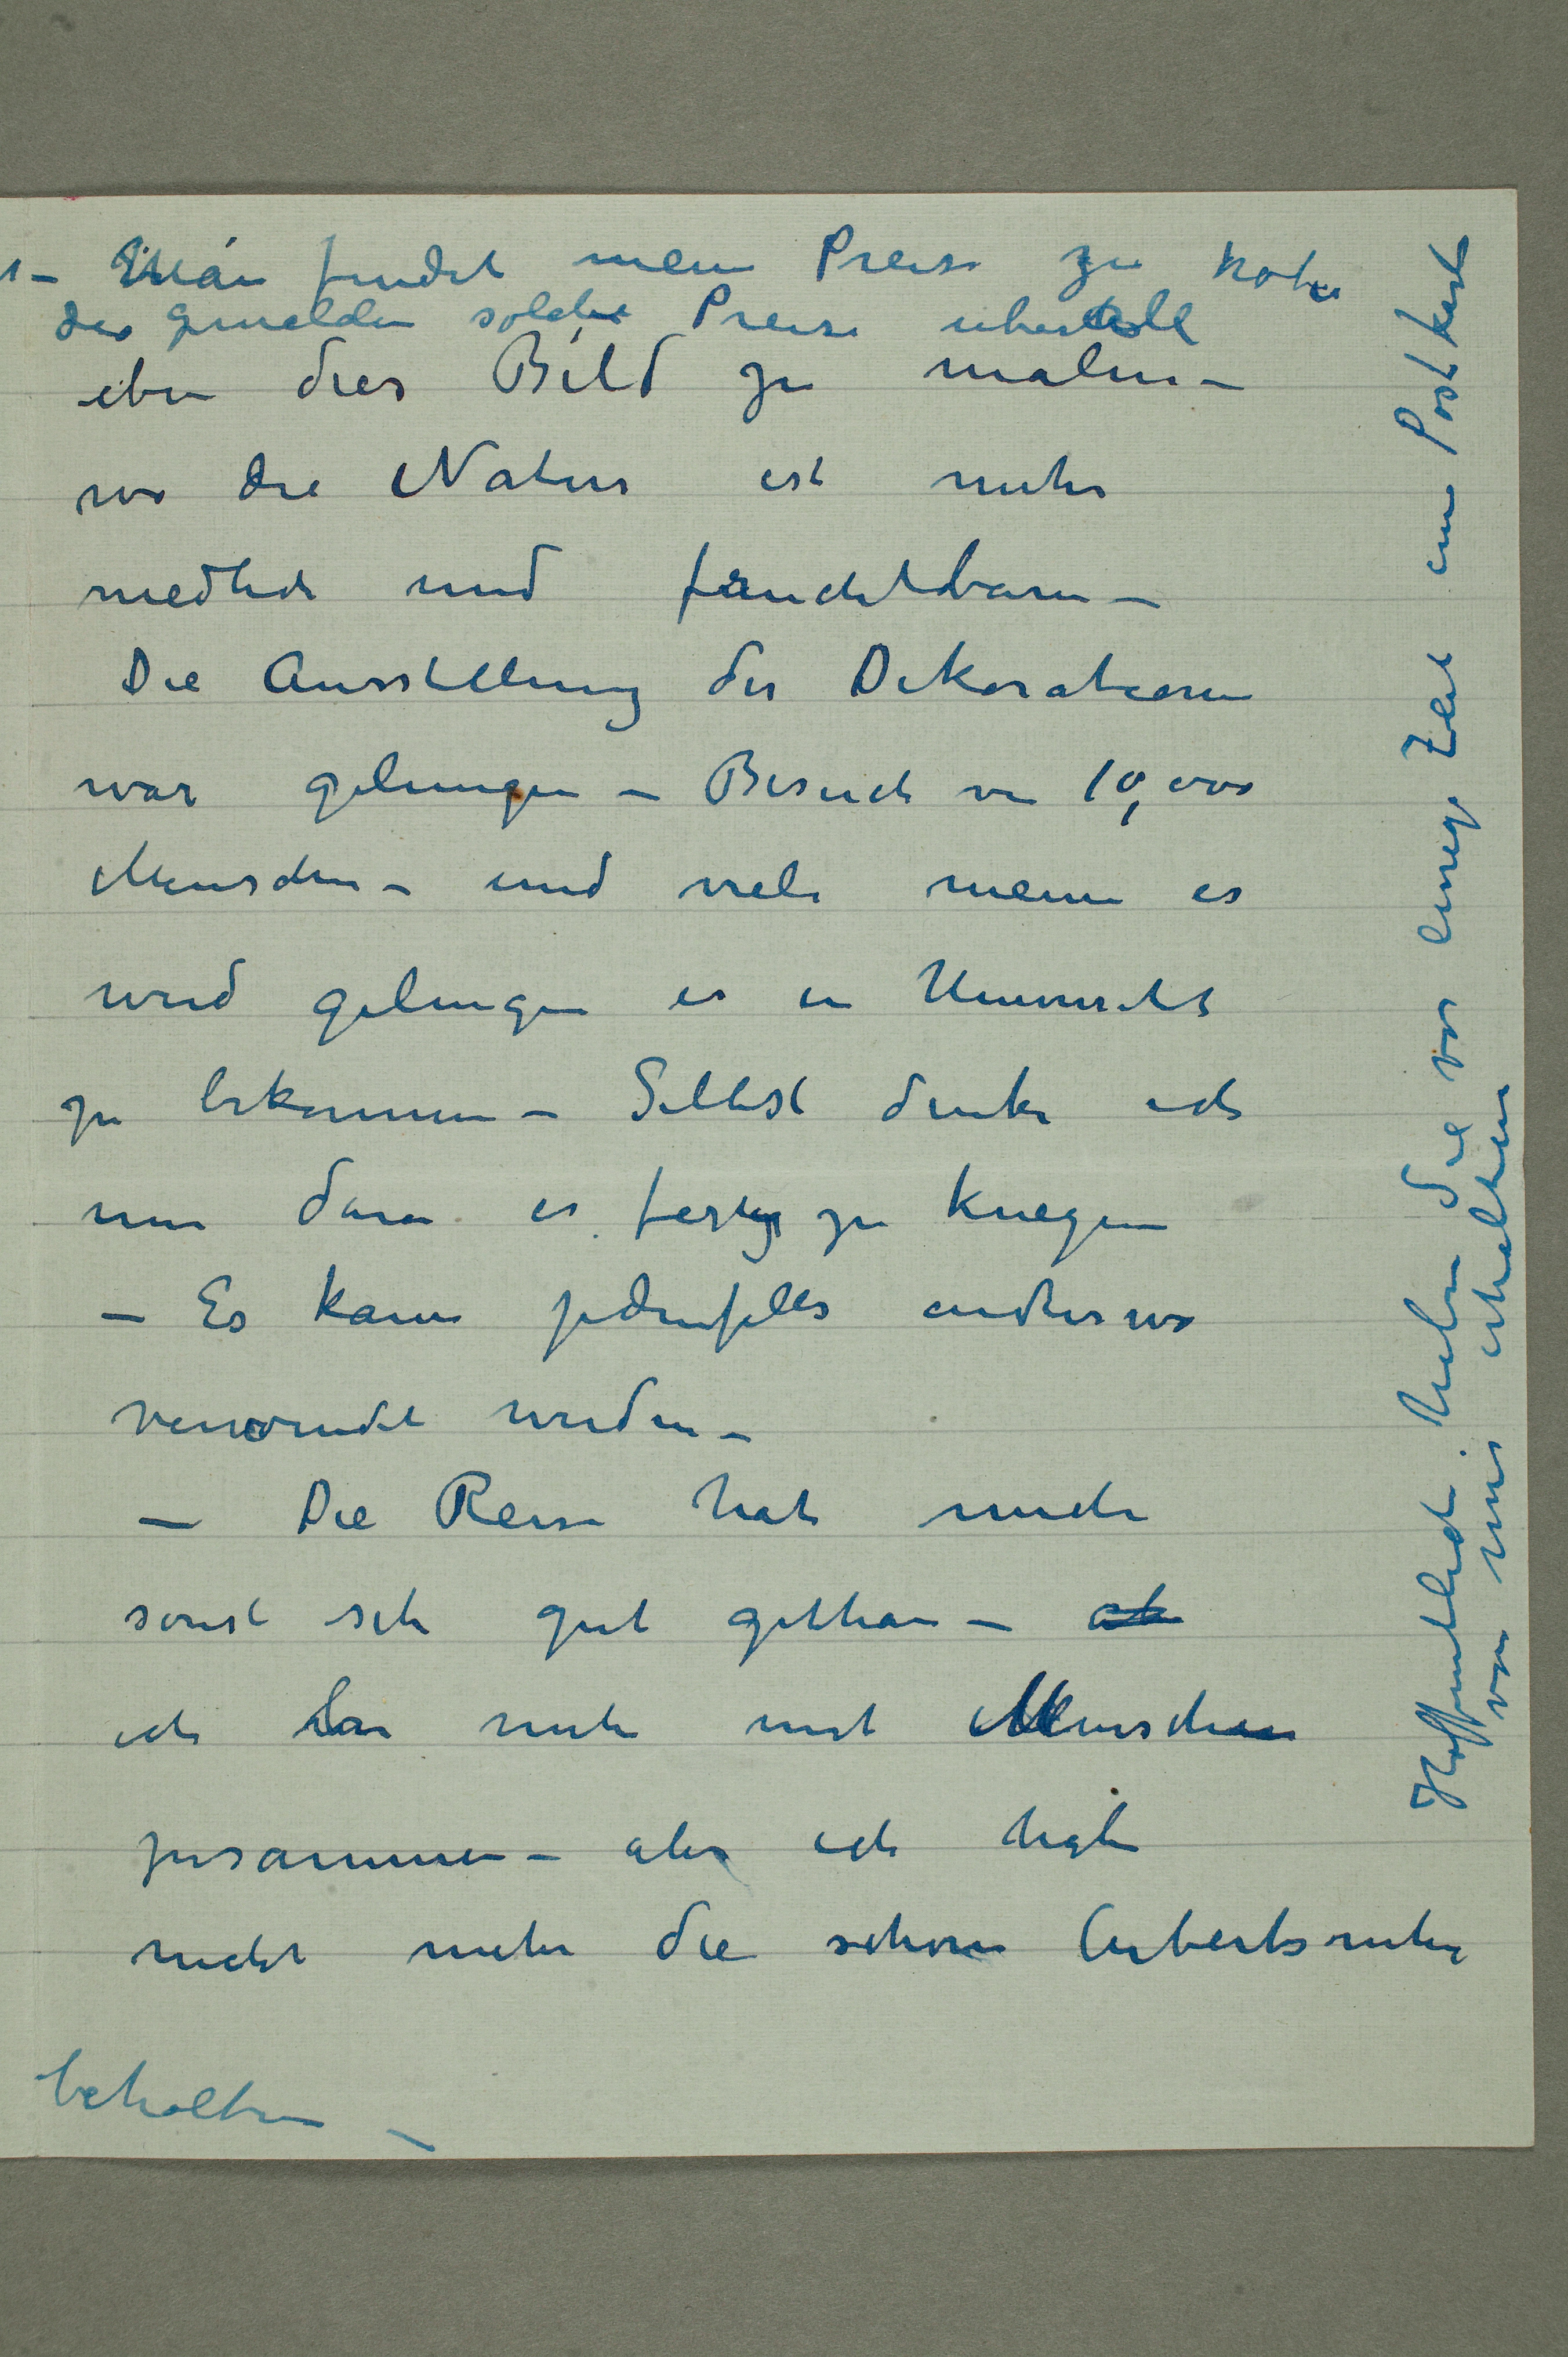 – Man findet meine Preise zu hohe
das Gemälden solche Preise überall
eben dies Bild zu malen –
wo die Natur ist mehr
niedlich und fruchtbare –
Die Ausstellung der Dekorationen
war gelungen – Besuch von 10,000
Menschen – und viele meinen es
wird gelingen es in Universität
zu bekommen – Selbst denke ich
nur daran es fertig zu kriegen
– Es kann jedenfalls anderswo
verwendet werden –
– Die Reise hat mich
sonst sehr gut gethan –
ich bin mehr mit Menschen
zusammen – aber ich habe
nicht mehr die schöne Arbeitsruhe
behalten –
Hoffentlich haben Sie vor einige Zeit eine Postkart
von mir erhalten